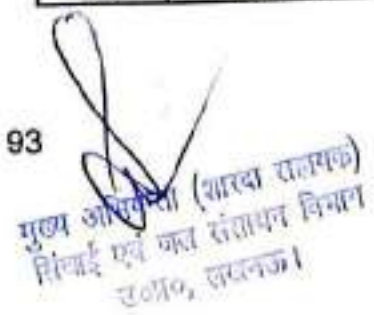 93
मुख्य अभियन्ता (शारदा सहायक)
सिंचाई एवं जल संसाधन विभाग
उ०प्र०, लखनऊ।